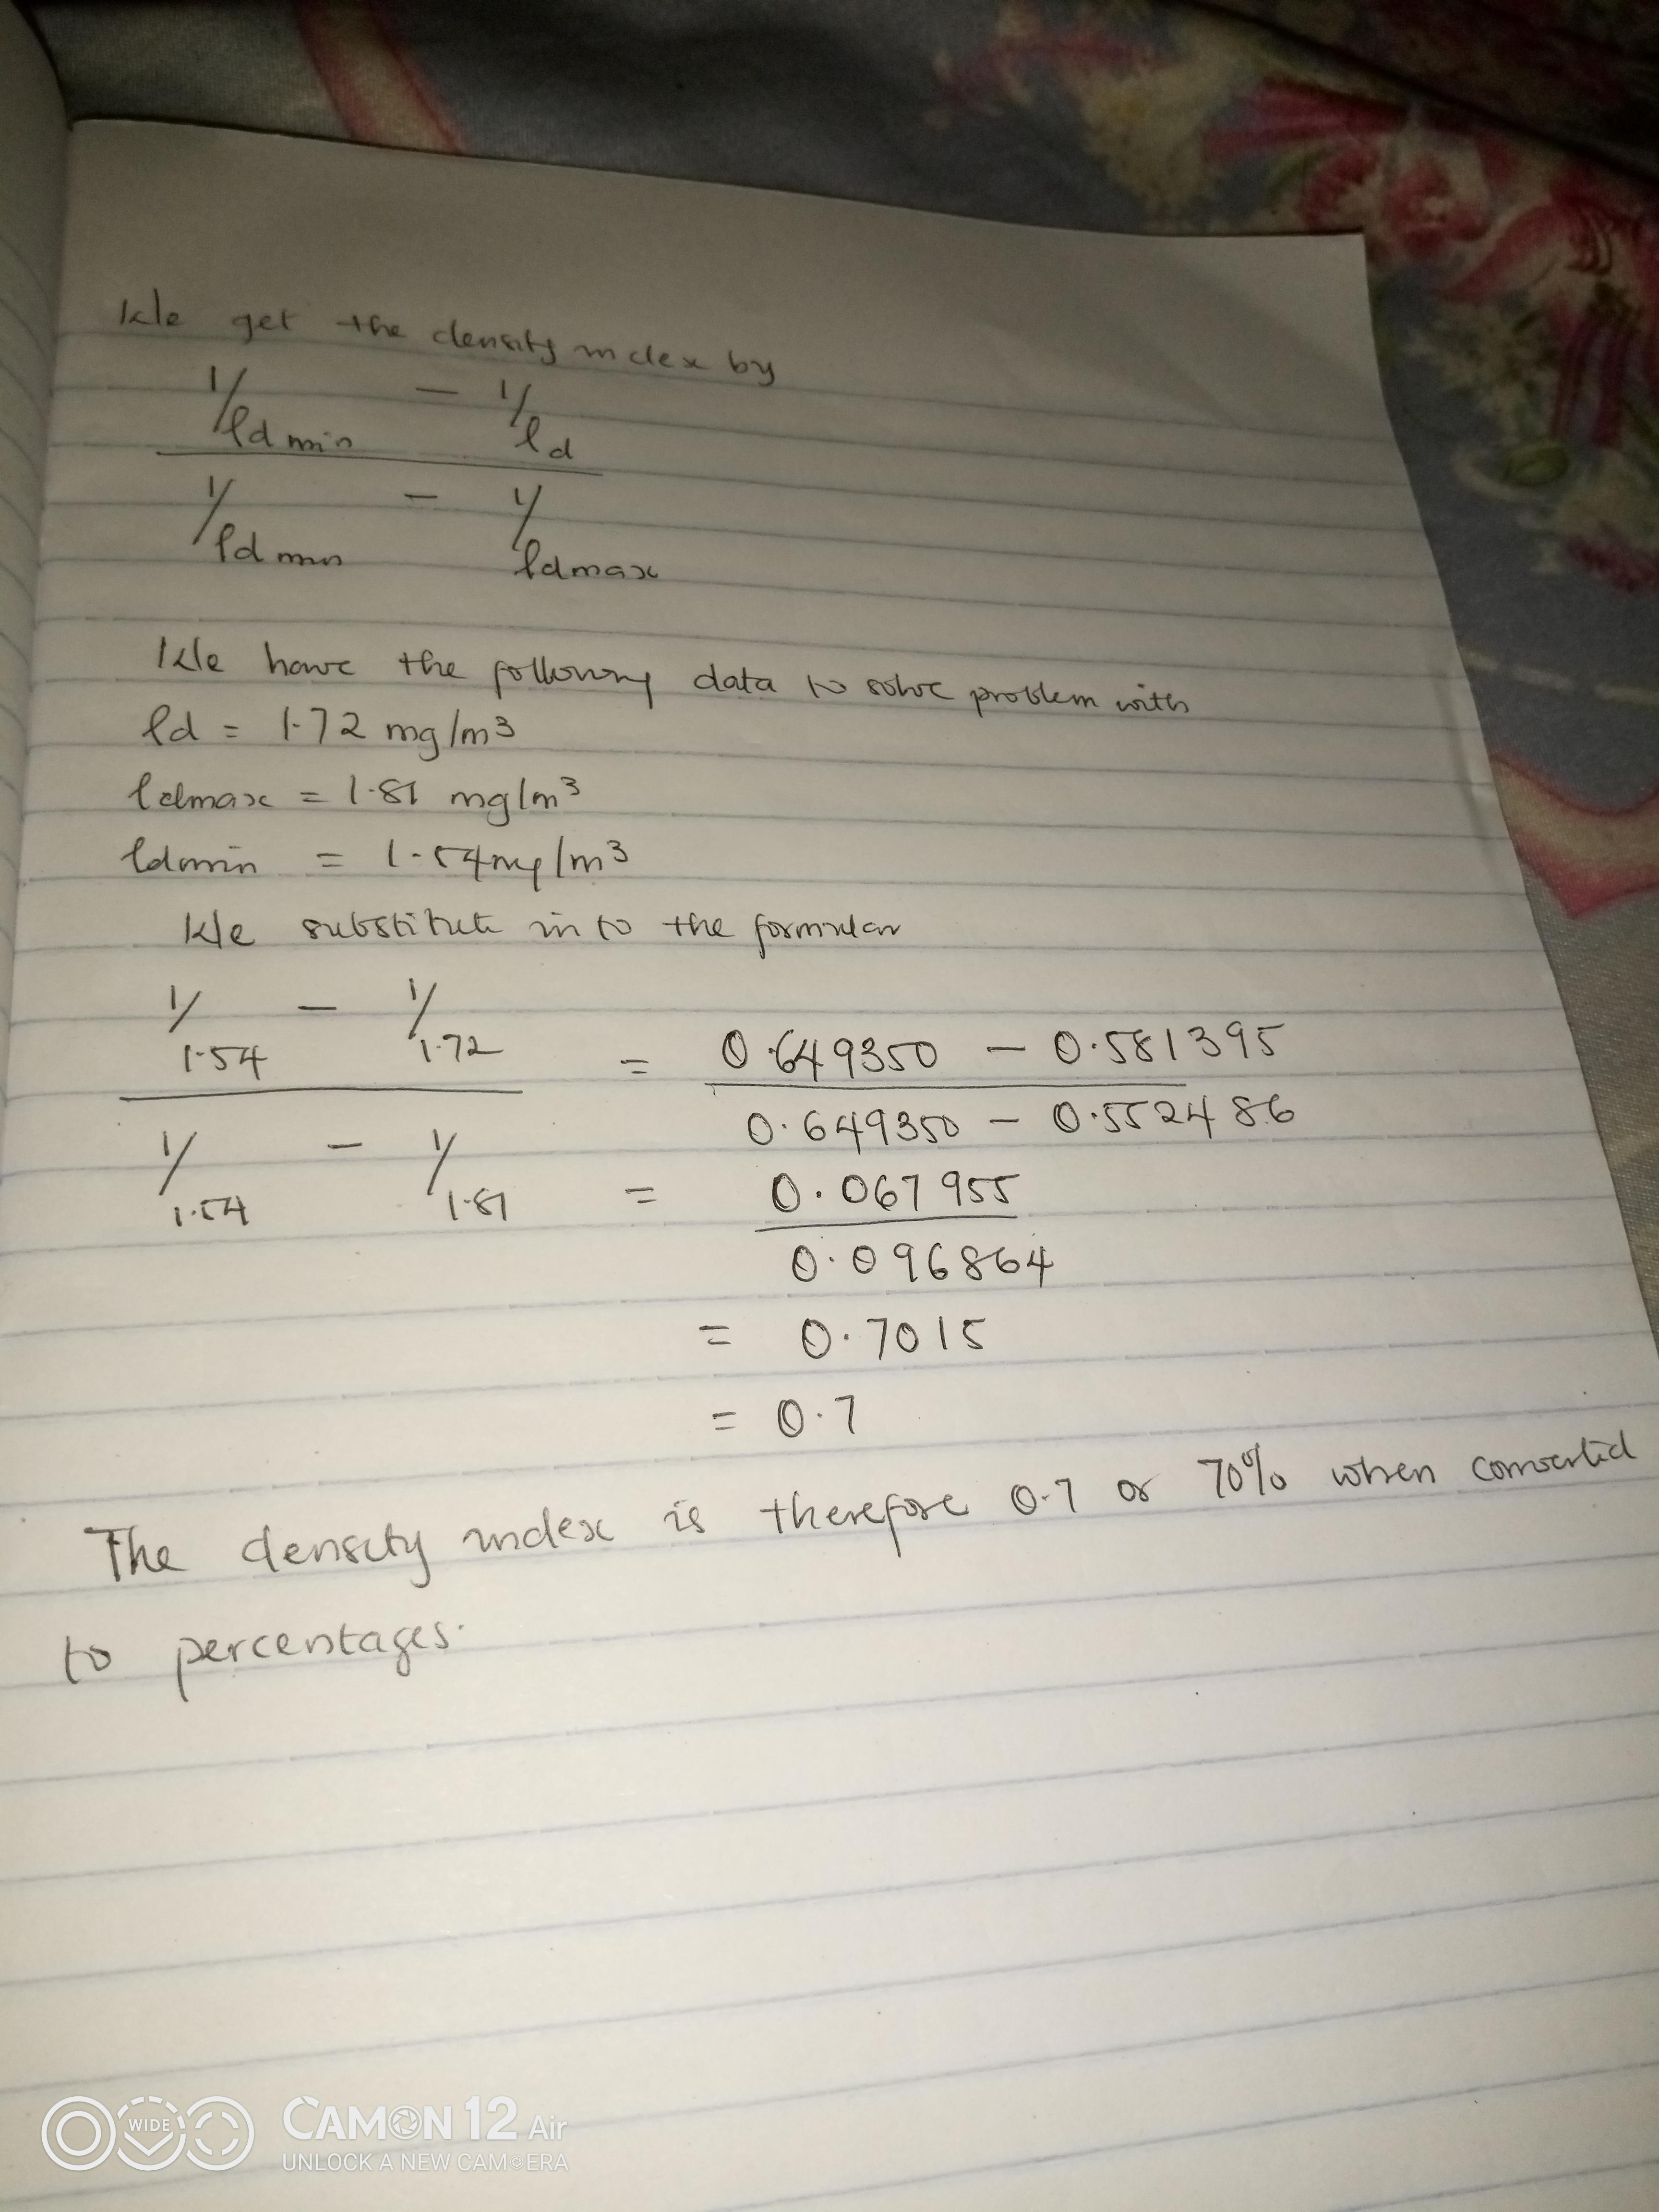 We get the density index by
1/ρd min - 1/ρd
1/ρd min - 1/ρdmax
We have the following data to solve problem with
ρd = 1.72 mg/m3
ρdmax = 1.81 mg/m3
ρdmin = 1.54mg/m3
We substitute in to the formular
1/1.54 - 1/1.72 = 0.649350 - 0.581395
1/1.54 - 1/1.81 0.649350 - 0.552486
= 0.067955
0.096864
= 0.7015
= 0.7
The density index is therefore 0.7 or 70% when converted
to percentages.
WIDE CAMON 12 Air
UNLOCK A NEW CAMERA